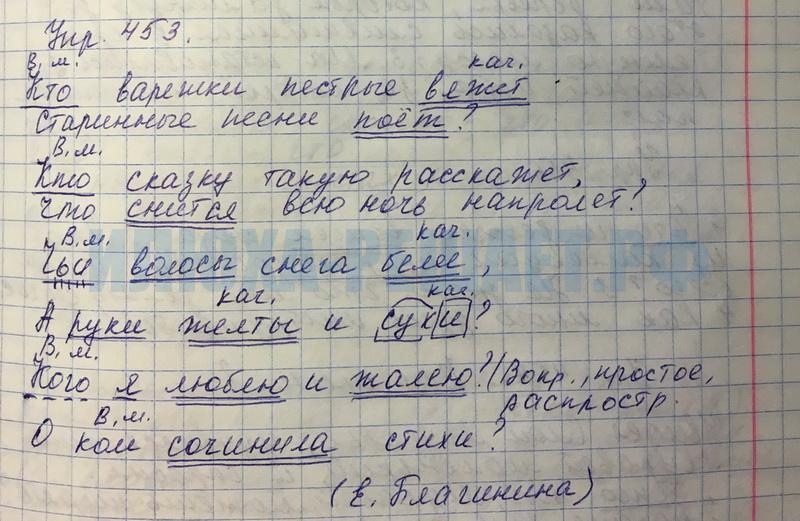 Упр. 453.
В.м. кач.
Кто варежки пестрые вяжет
Старинные песни поёт?
В.м.
Кто сказку такую расскажет,
Что снится всю ночь напролет?
В.м. кач.
Чьи волосы снега белее,
кач. кач.
А руки желты и суки?
В.м.
Кого я люблю и жалею? (Вопр., простое,
распростр.
В.м.
О ком сочинила стихи?
(Е. Благинина)
ИЛЮХА-РЕШАЕТ.РФ